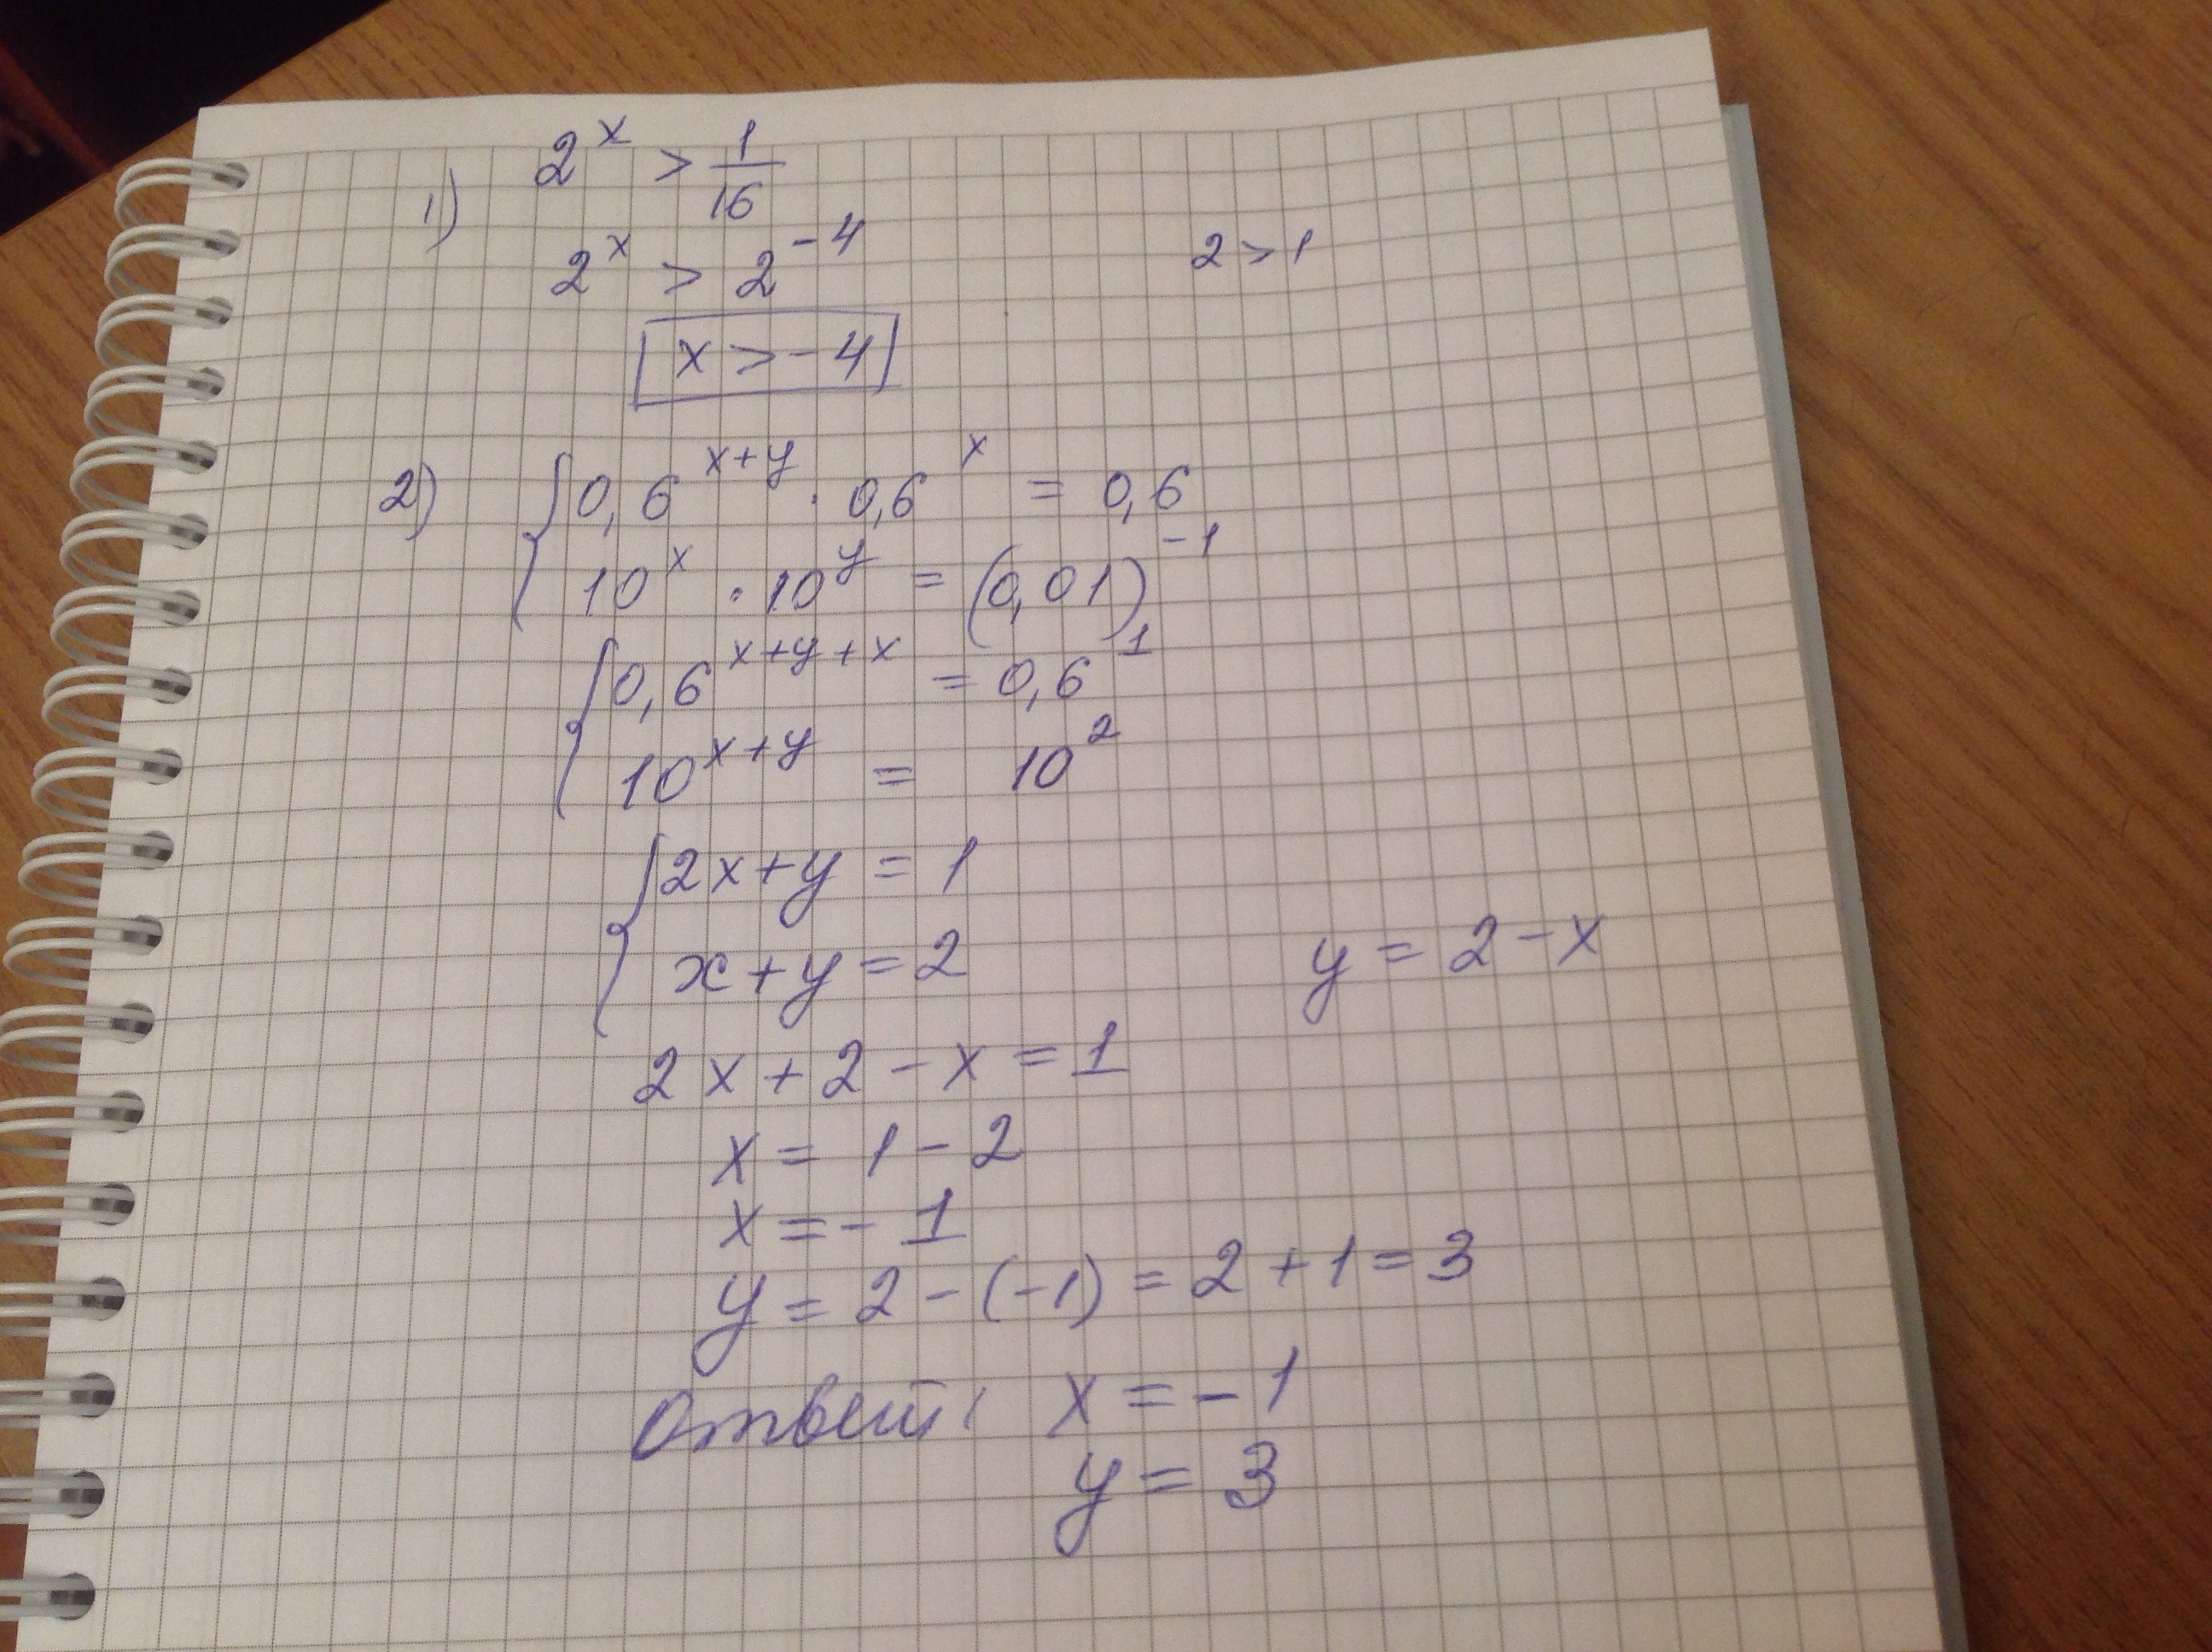 1) 2^x > 1/16
2^x > 2^-4    2 > 1
x > -4
2) { 0,6^x+y · 0,6^x = 0,6
10^x · 10^y = (0,01)^-1
{ 0,6^x+y+x = 0,6^1
10^x+y = 10^2
{ 2x+y = 1
x+y = 2    y = 2-x
2x+2-x = 1
x = 1-2
x = -1
y = 2-(-1) = 2+1 = 3
Ответ: x = -1
y = 3